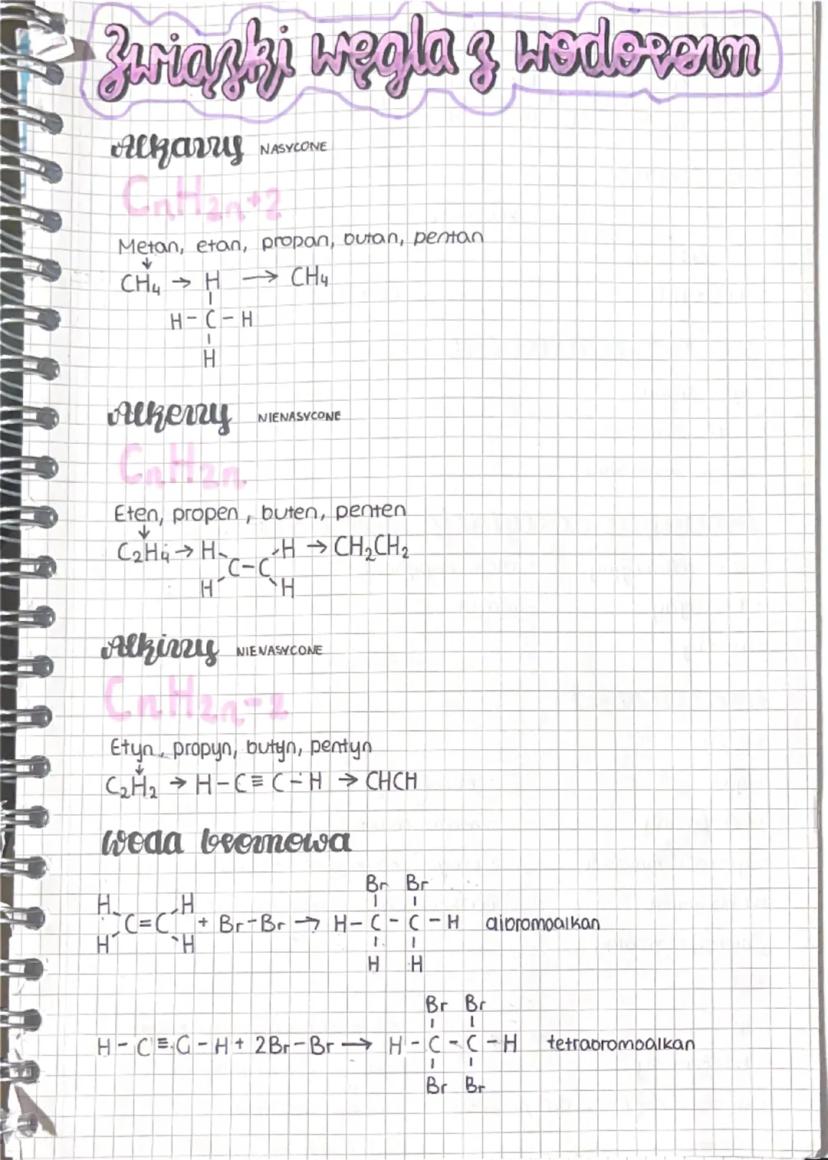 Związki węgla z wodorem
Alkany NASYCONE
CnH2n+2
Metan, etan, propan, butan, pentan
↓
CH₄ → H → CH₄
|
H - C - H
|
H
Alkeny NIENASYCONE
CnH2n
Eten, propen, buten, penten
↓
C₂H₄ → H H → CH₂CH₂
C - C
H H
Alkiny NIENASYCONE
CnH2n-2
Etyn, propyn, butyn, pentyn
↓
C₂H₂ → H - C ≡ C - H → CHCH
Woda bromowa
Br Br
H H
C = C + Br - Br → H - C - C - H dibromoalkan
H H
H H
Br Br
H - C ≡ C - H + 2Br - Br → H - C - C - H tetrabromoalkan
Br Br